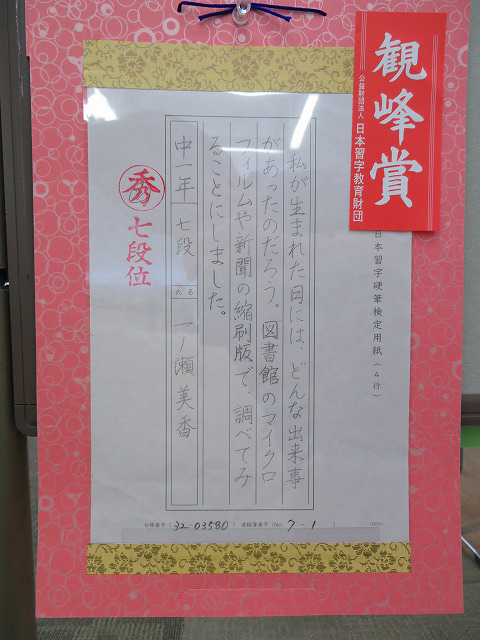 観峰賞
公益財団法人 日本習字教育財団
日本習字硬筆検定用紙(4行)
私が生まれた日には、どんな出来事
があったのだろう。図書館のマイクロ
フィルムや新聞の縮刷版で、調べてみ
ることにしました。
中一年 七段 氏名 一ノ瀬美香
秀 七段位
(32-03580) (No. 7-1)